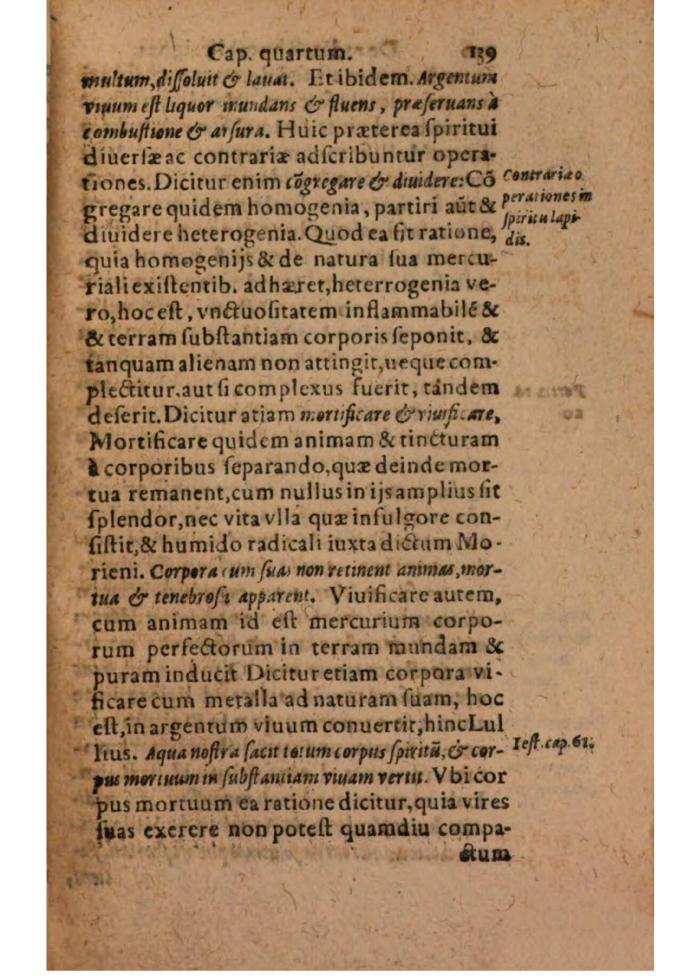 Cap. quartum. 139
multum,diſſoluit & lauat. Et ibidem. Argentum
viuum eſt liquor inundans & fluens, præſeruans à
combuſtione & arſura. Huic præterea ſpiritui
diuerſæ ac contrariæ adſcribuntur opera-
tiones. Dicitur enim cõgregare & diuidere: Cõ
Contrariæ o
gregare quidem homogenia, partiri aũt &
perationes in
ſpiritu lapi-
diuidere heterogenia. Quod ea fit ratione,
dis.
quia homogenijs & de natura ſua mercu-
riali exiſtentib. adhæret, heterrogenia ve-
ro, hoc eſt, vnctuoſitatem inflammabilẽ &
& terram ſubſtantiam corporis ſeponit, &
tanquam alienam non attingit, neque com-
plectitur, aut ſi complexus fuerit, tandem
deſerit. Dicitur atiam mortificare & viuificare,
Mortificare quidem animam & tincturam
à corporibus ſeparando, quæ deinde mor-
tua remanent, cum nullus in ijs amplius ſit
ſplendor, nec vita vlla quæ in fulgore con-
ſiſtit, & humido radicali iuxta dictum Mo-
rieni. Corpora cum ſuas non retinent animas, mor-
tua & tenebroſa apparent. Viuificare autem,
cum animam id eſt mercurium corpo-
rum perfectorum in terram mundam &
puram inducit Dicitur etiam corpora vi-
ficare cum metalla ad naturam ſuam, hoc
eſt, in argentum viuum conuertit, hinc Lul
lius. Aqua noſtra facit totum corpus ſpiritũ, & cor-
Teſt. cap. 61.
pus mortuum in ſubſtantiam viuam vertit. Vbi cor
pus mortuum ea ratione dicitur, quia vires
ſuas exercre non poteſt quamdiu compa-
ctum